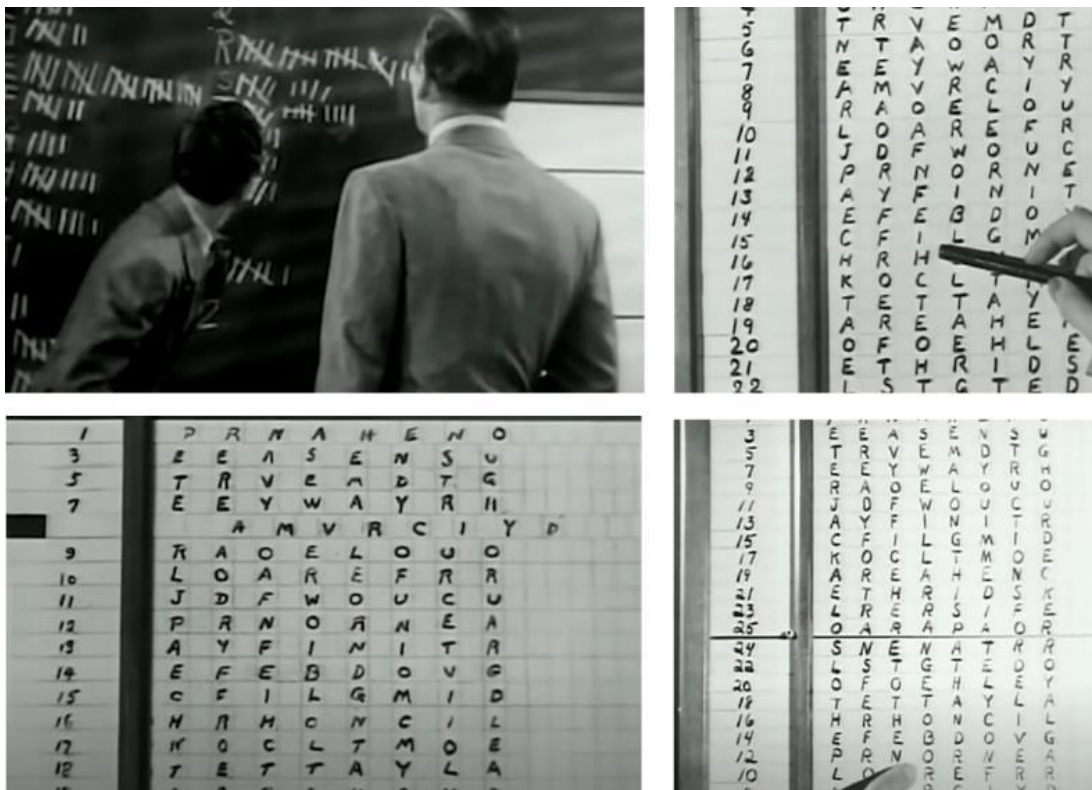 R
S
5 T R V E M D T
6 N T A O O R T
7 E E Y W A Y R
8 A M V R C I Y
9 R A O E L O U
10 L O A R E F R
11 J D F W O U C
12 P R N O R N E
13 A Y F I N I T
14 E F E B D O
15 C F I L G M
16 H R H
17 K O C L T
18 T E T T A Y
19 A R E A H E
20 O F O E H L E
21 E T H R I D S
22 L S T G T E D
1 P R N A H E N O
3 E E A S E N S U
5 T R V E M D T G
7 E E Y W A Y R H
A M V R C I Y D
9 R A O E L O U O
10 L O A R E F R R
11 J D F W O U C U
12 P R N O R N E A
13 A Y F I N I T R
14 E F E B D O V G
15 C F I L G M I D
16 H R H O N C I L
17 K O C L T M O E
18 T E T T A Y L A
3 E E A S E N S U
5 T R V E M D T G
7 E E Y W A Y R H
9 R A O E L O U O
11 J D F W O U C U
13 A Y F I N I T R
15 C F I L G M I D
17 K O C L T M O E
19 A R E A H E N C
21 E T H R I D S K
23 L R E R S I F E
25 O A R A P A O R
24 S N E N A T R R
22 L S T G T E D O
20 O F O E H L E Y
18 T E T T A Y L A
16 H R H O N C I L
14 E F E B D O V G
12 P R N O R N E A
10 L O R E F R R